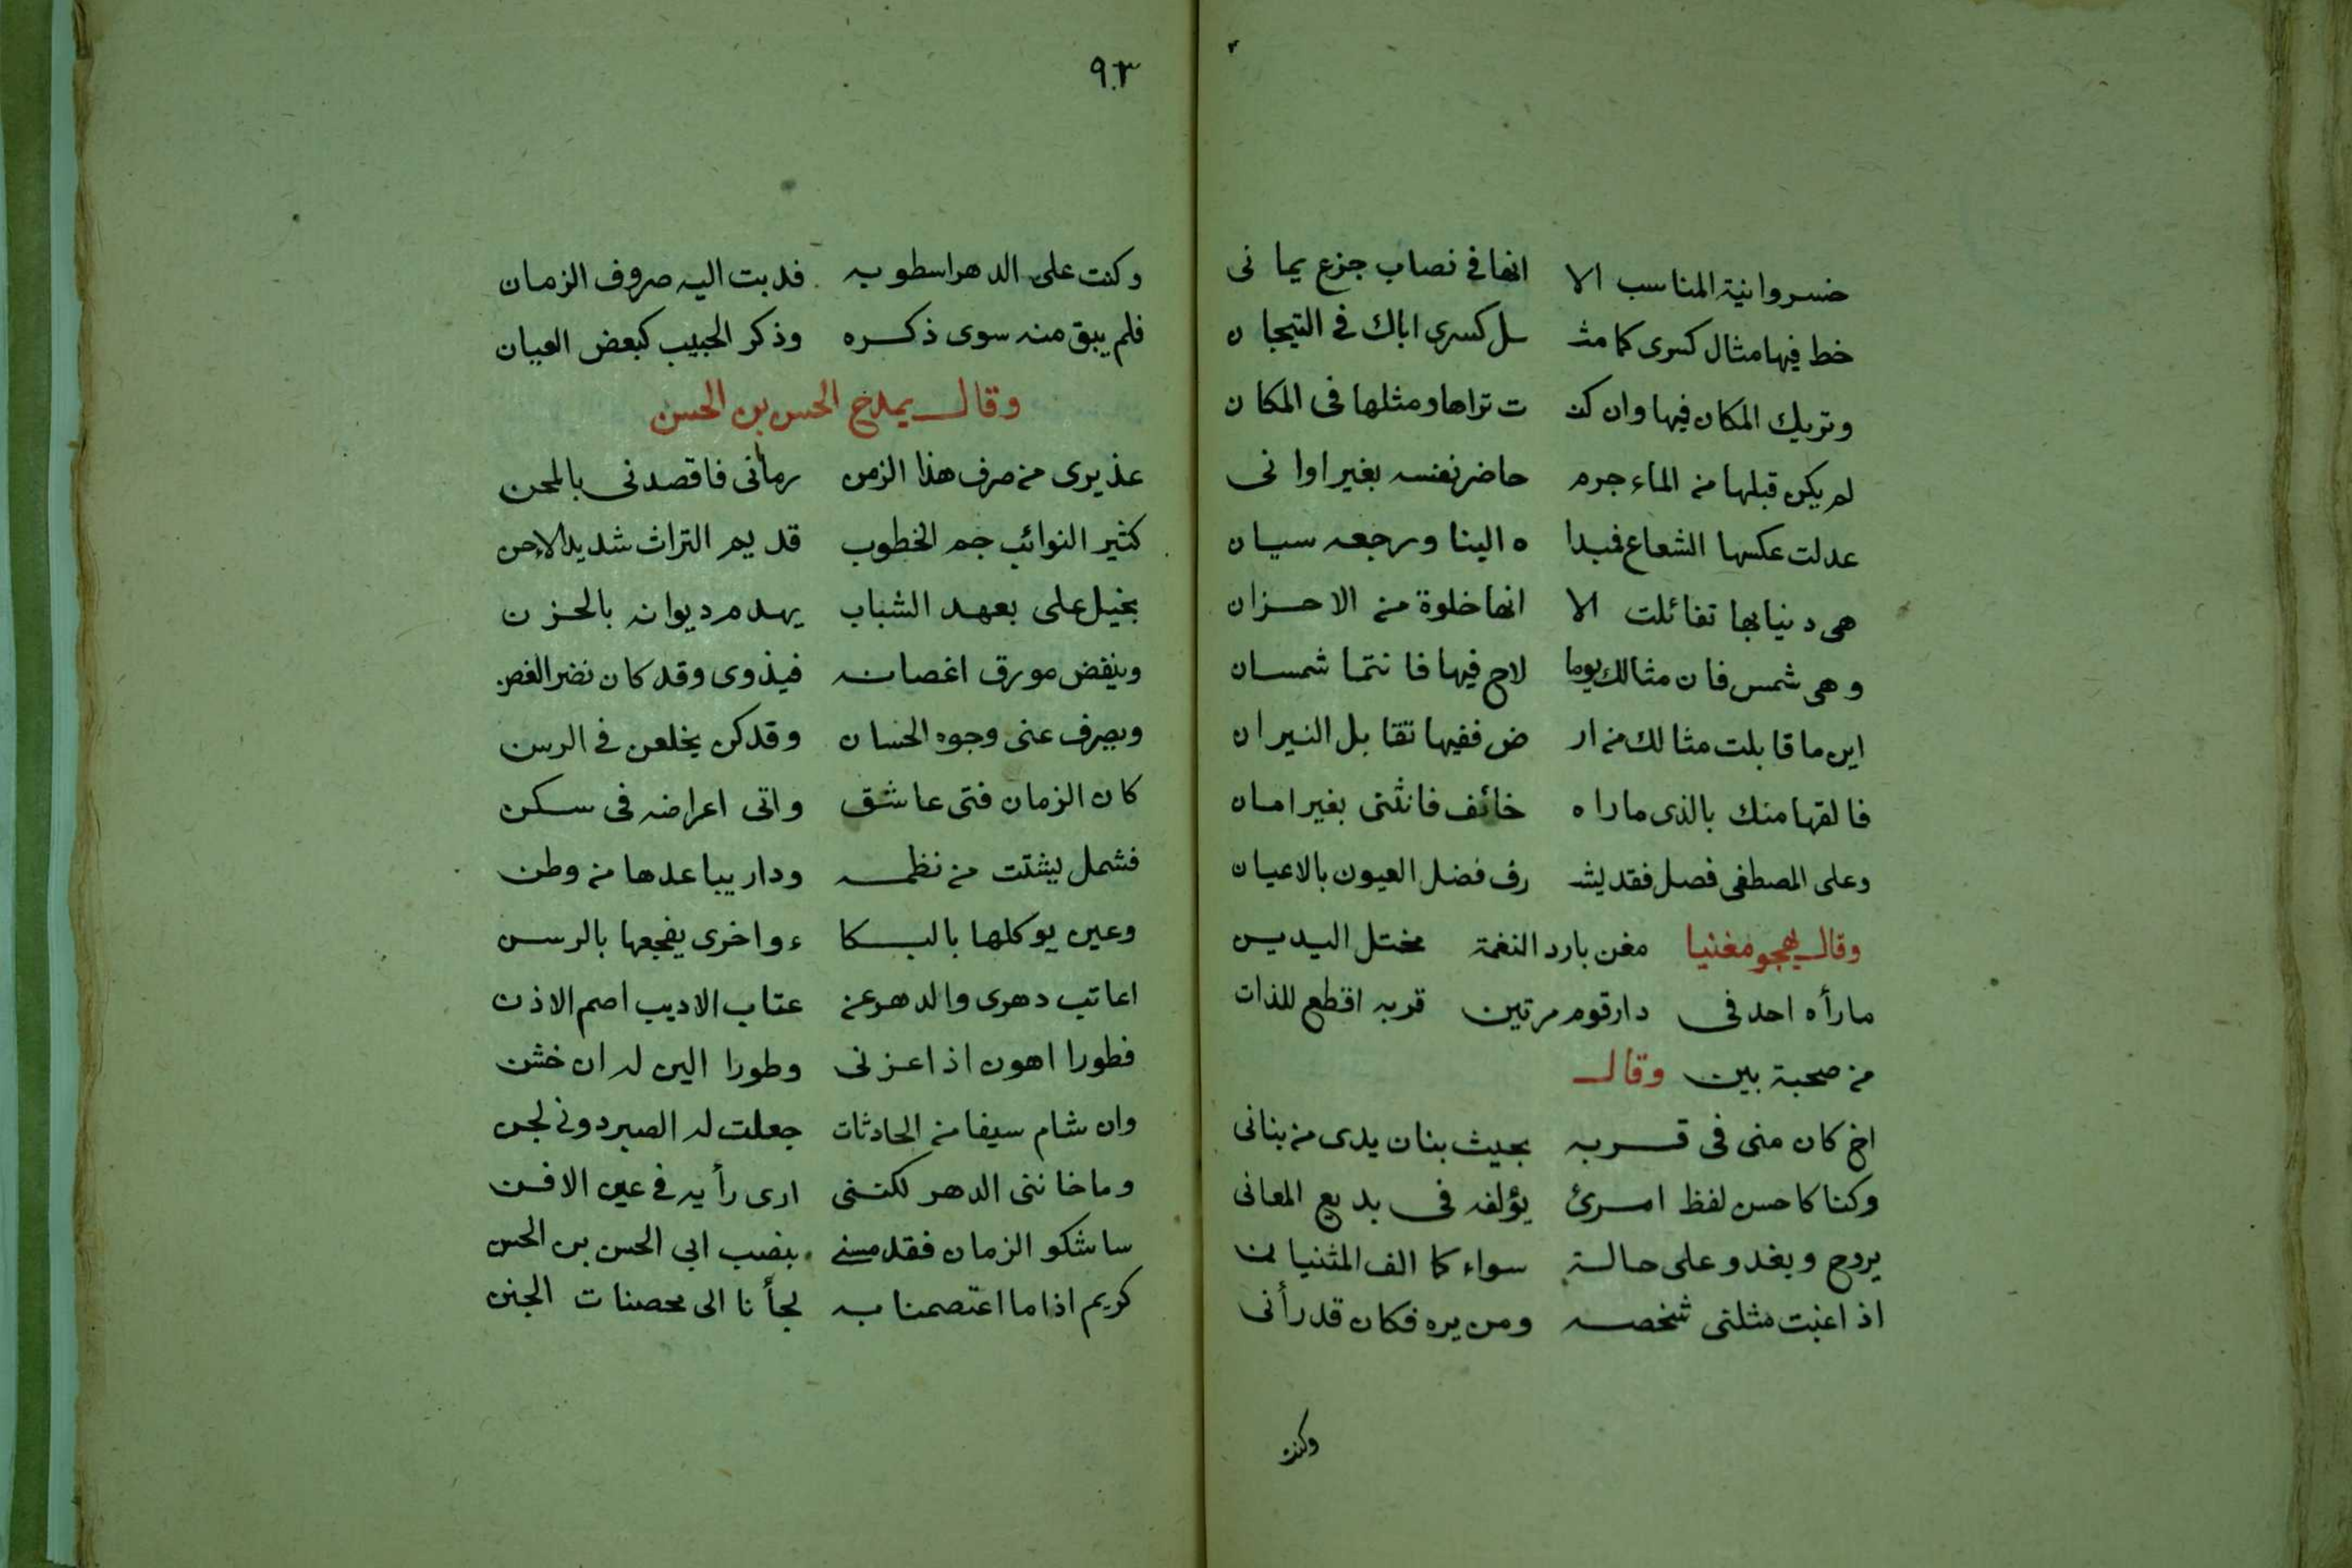 خسروانية المناسب الا انها في نصاب جزع يمانى
خط فيها مثال كسرى كما مثـ ـل كسرى اباك فى التيجان
وتريك المكان فيها وان كنـ ت تراها ومثلها فى المكان
لم يكن قبلها من الماء جرم حاضر نفسه بغير اوانى
عدلت عكسها الشعاع فمبدا ه الينا ورجعه سيان
هى دنيا بها تفائلت الا انها خلوة من الاحزان
وهى شمس فان مثالك يوما لاح فيها فانتما شمسان
اين ما قابلت مثالك من ار ض ففيها تقابل النيران
فالقها منك بالذى ما راه خائف فانثنى بغير امان
وعلى المصطفى فصل فقد يشـ رف فضل العيون بالاعيان
وقال يهجو مغنيا مغن بارد النغمة مختل اليدين
ما رأه احد فى دار قوم مرتين قربه اقطع للذات
من صحبة بين وقال
اخ كان منى فى قربه بحيث بنان يدى من بنانى
وكنا كاحسن لفظ امرئ يؤلفه فى بديع المعانى
يروح ويغدو على حالة سواء كما الف المثنيان
اذ اغبت مثلتى شخصه ومن يره فكان قد رأنى
وكنت
٩٣
وكنت على الدهر اسطو به فدبت اليه صروف الزمان
فلم يبق منه سوى ذكره وذكر الحبيب كبعض العيان
وقال يمدح الحسن بن الحسن
عذيرى من صرف هذا الزمن رمانى فاقصدنى بالمحن
كثير النوائب جم الخطوب قديم التراث شديد الاحن
بخيل على بعهد الشباب يهدم ديوانه بالحزن
وينفض مورق اغصانه فيذوى وقد كان نضر الغصن
ويصرف عنى وجوه الحسان وقد كن يخلعن فى الرسن
كان الزمان فتى عاشق واتى اعراضه فى سكن
فشمل يشتت من نظمه ودار يباعدها من وطن
وعين يوكلها بالبكا ء واخرى يفجعها بالوسن
اعاتب دهرى والدهر عن عتاب الاديب اصم الاذن
فطورا اهون اذ اعزنى وطورا الين له ان خشن
وان شام سيفا من الحادثات جعلت له الصبر دونى لجن
وما خاننى الدهر لكننى ارى رأيه فى عين الافن
ساشكو الزمان فقد مسنى بنصب ابى الحسن بن الحسن
كريم اذا ما اعتصمنا به لجأنا الى محصنات الجنن